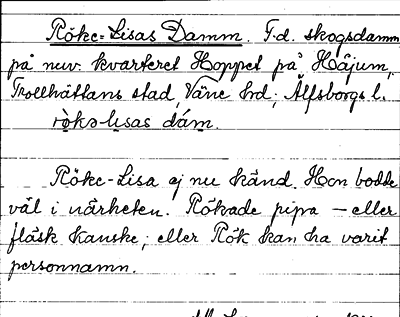 Röke-Lisas Damm. F.d. skogsdamm
på nuv. kvarteret Hoppet på Håjum,
Trollhättans stad, Väne hd; Älfsborgs l.
rö̀kə-lisas dám.
Röke-Lisa ej nu känd. Hon bodde
väl i närheten. Rökade pipa – eller
fläsk kanske; eller Rök kan ha varit
personnamn.